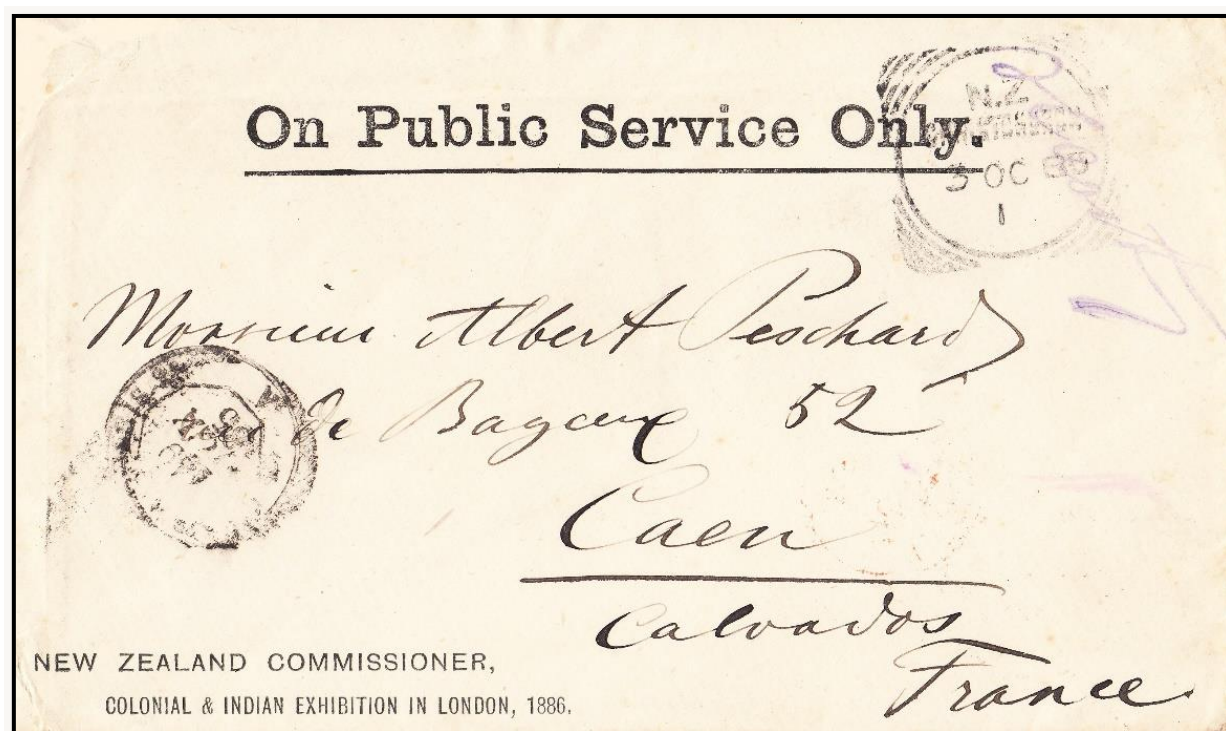 On Public Service Only.
N.Z
3 OC 85
1
Monsieur Albert Peschard
de Bayeux 52
Caen
Calvados
France.
NEW ZEALAND COMMISSIONER,
COLONIAL & INDIAN EXHIBITION IN LONDON, 1886.